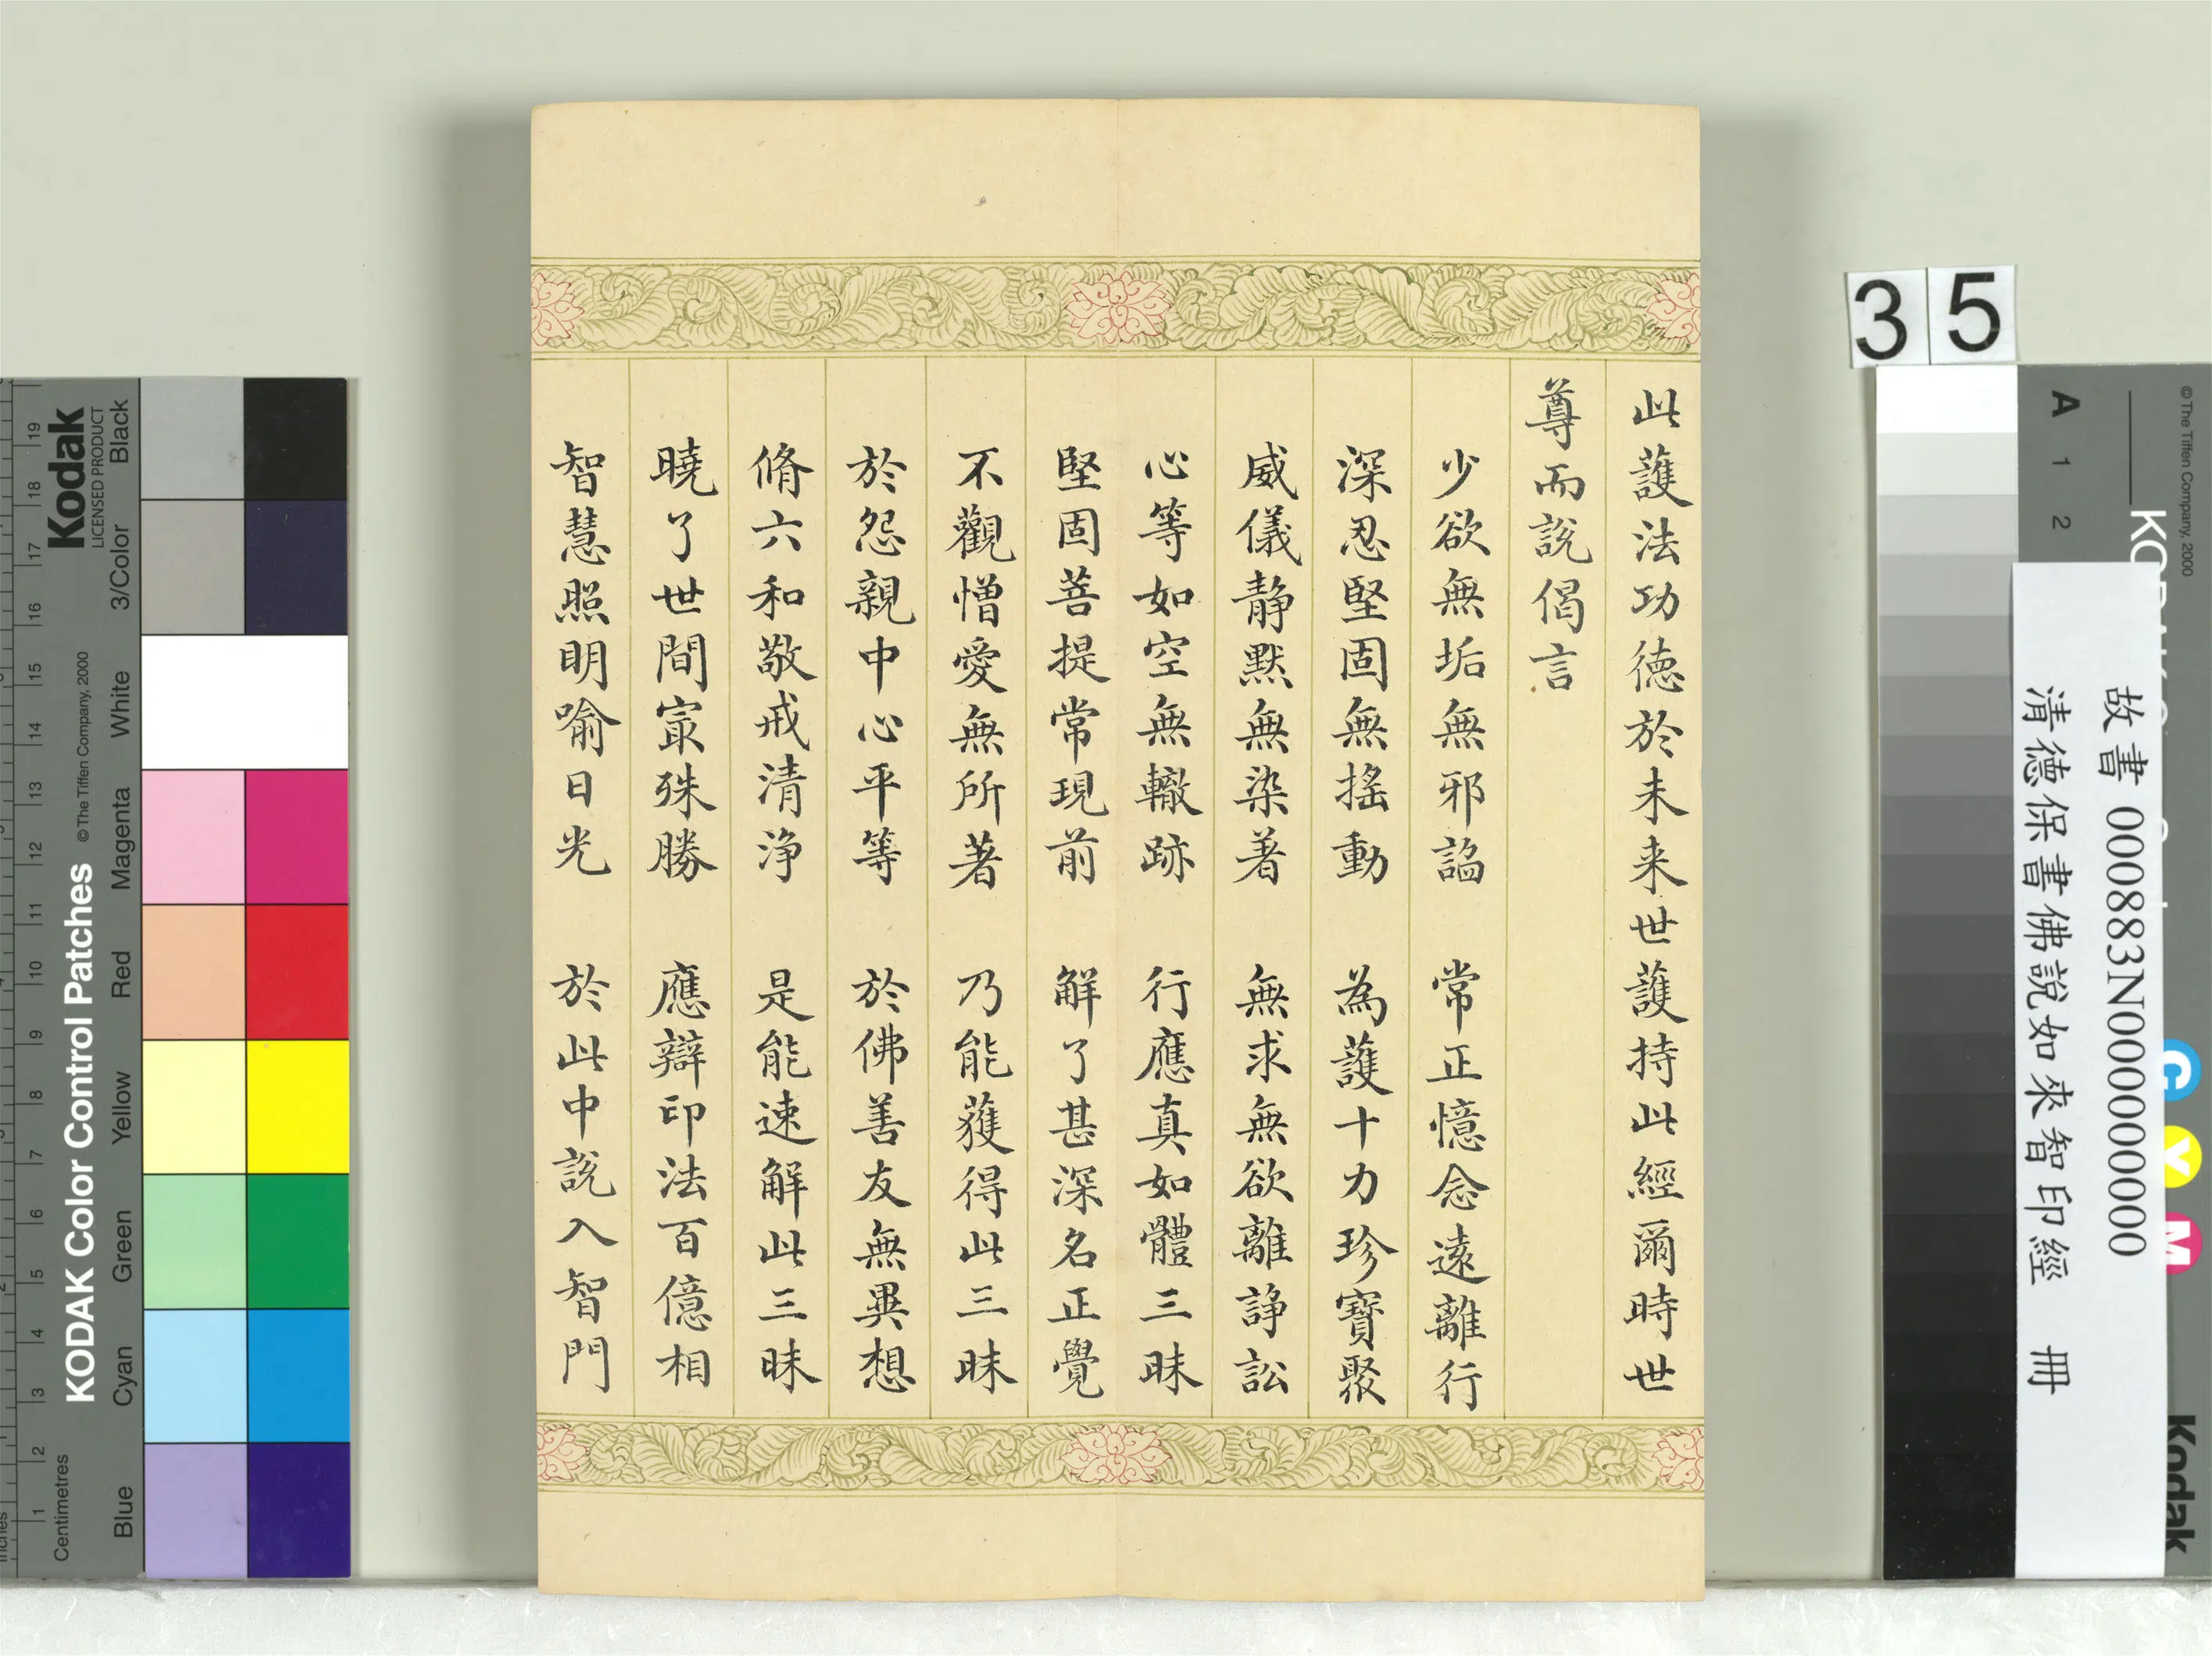 此護法功德於未来世護持此經爾時世
尊而說偈言
少欲無垢無邪諂 常正憶念遠離行
深忍堅固無搖動 為護十力珍寶聚
威儀静默無染著 無求無欲離諍訟
心等如空無轍跡 行應真如體三昧
堅固菩提常現前 解了甚深名正覺
不觀憎愛無所著 乃能獲得此三昧
於怨親中心平等 於佛善友無異想
脩六和敬戒清浄 是能速解此三昧
曉了世間㝡殊勝 應辯印法百億相
智慧照明喻日光 於此中說入智門
35
故書 000883N000000000
清德保書佛說如來智印經 冊
Kodak
LICENSED PRODUCT
KODAK Color Control Patches
© The Tiffen Company, 2000
Black
3/Color
White
Magenta
Red
Yellow
Green
Cyan
Blue
Centimetres
19 18 17 16 15 14 13 12 11 10 9 8 7 6 5 4 3 2 1
© The Tiffen Company, 2000
A 1 2
C Y M
Kodak